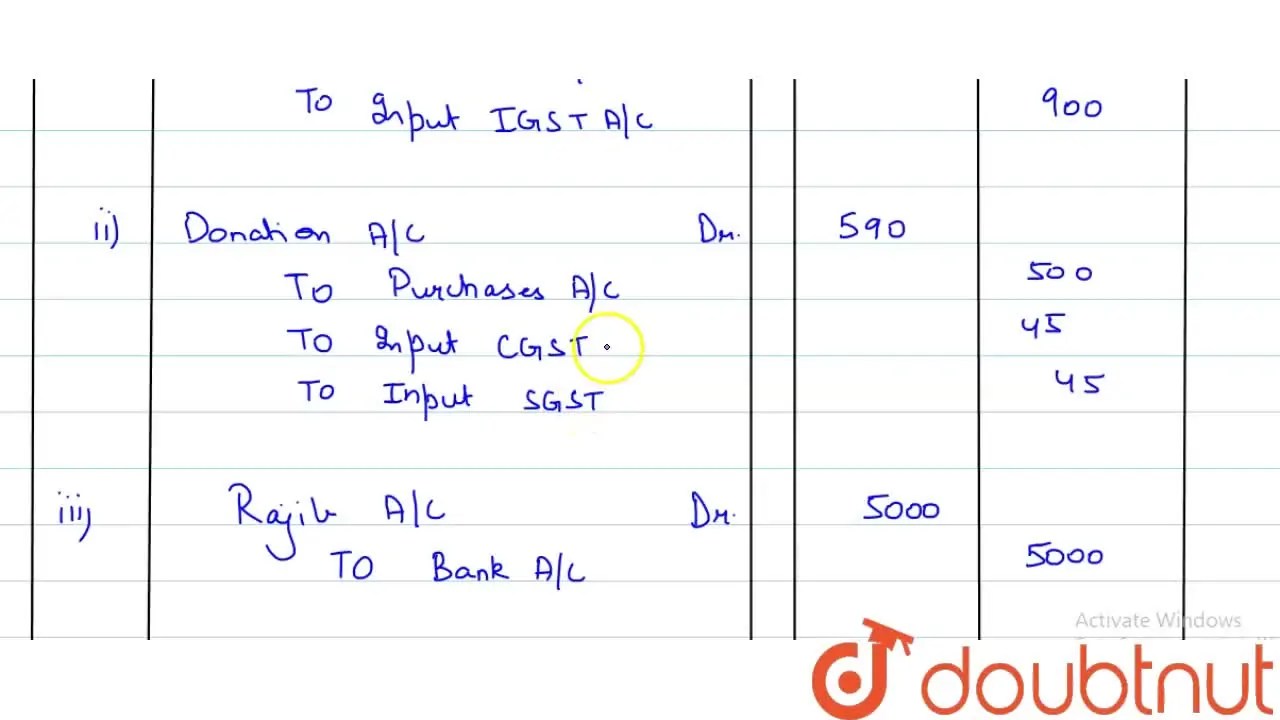 To Input IGST A/C 900
ii) Donation A/C Dr. 590
To Purchases A/C 500
To Input CGST 45
To Input SGST 45
iii) Rajib A/C Dr. 5000
To Bank A/C 5000
Activate Windows
doubtnut